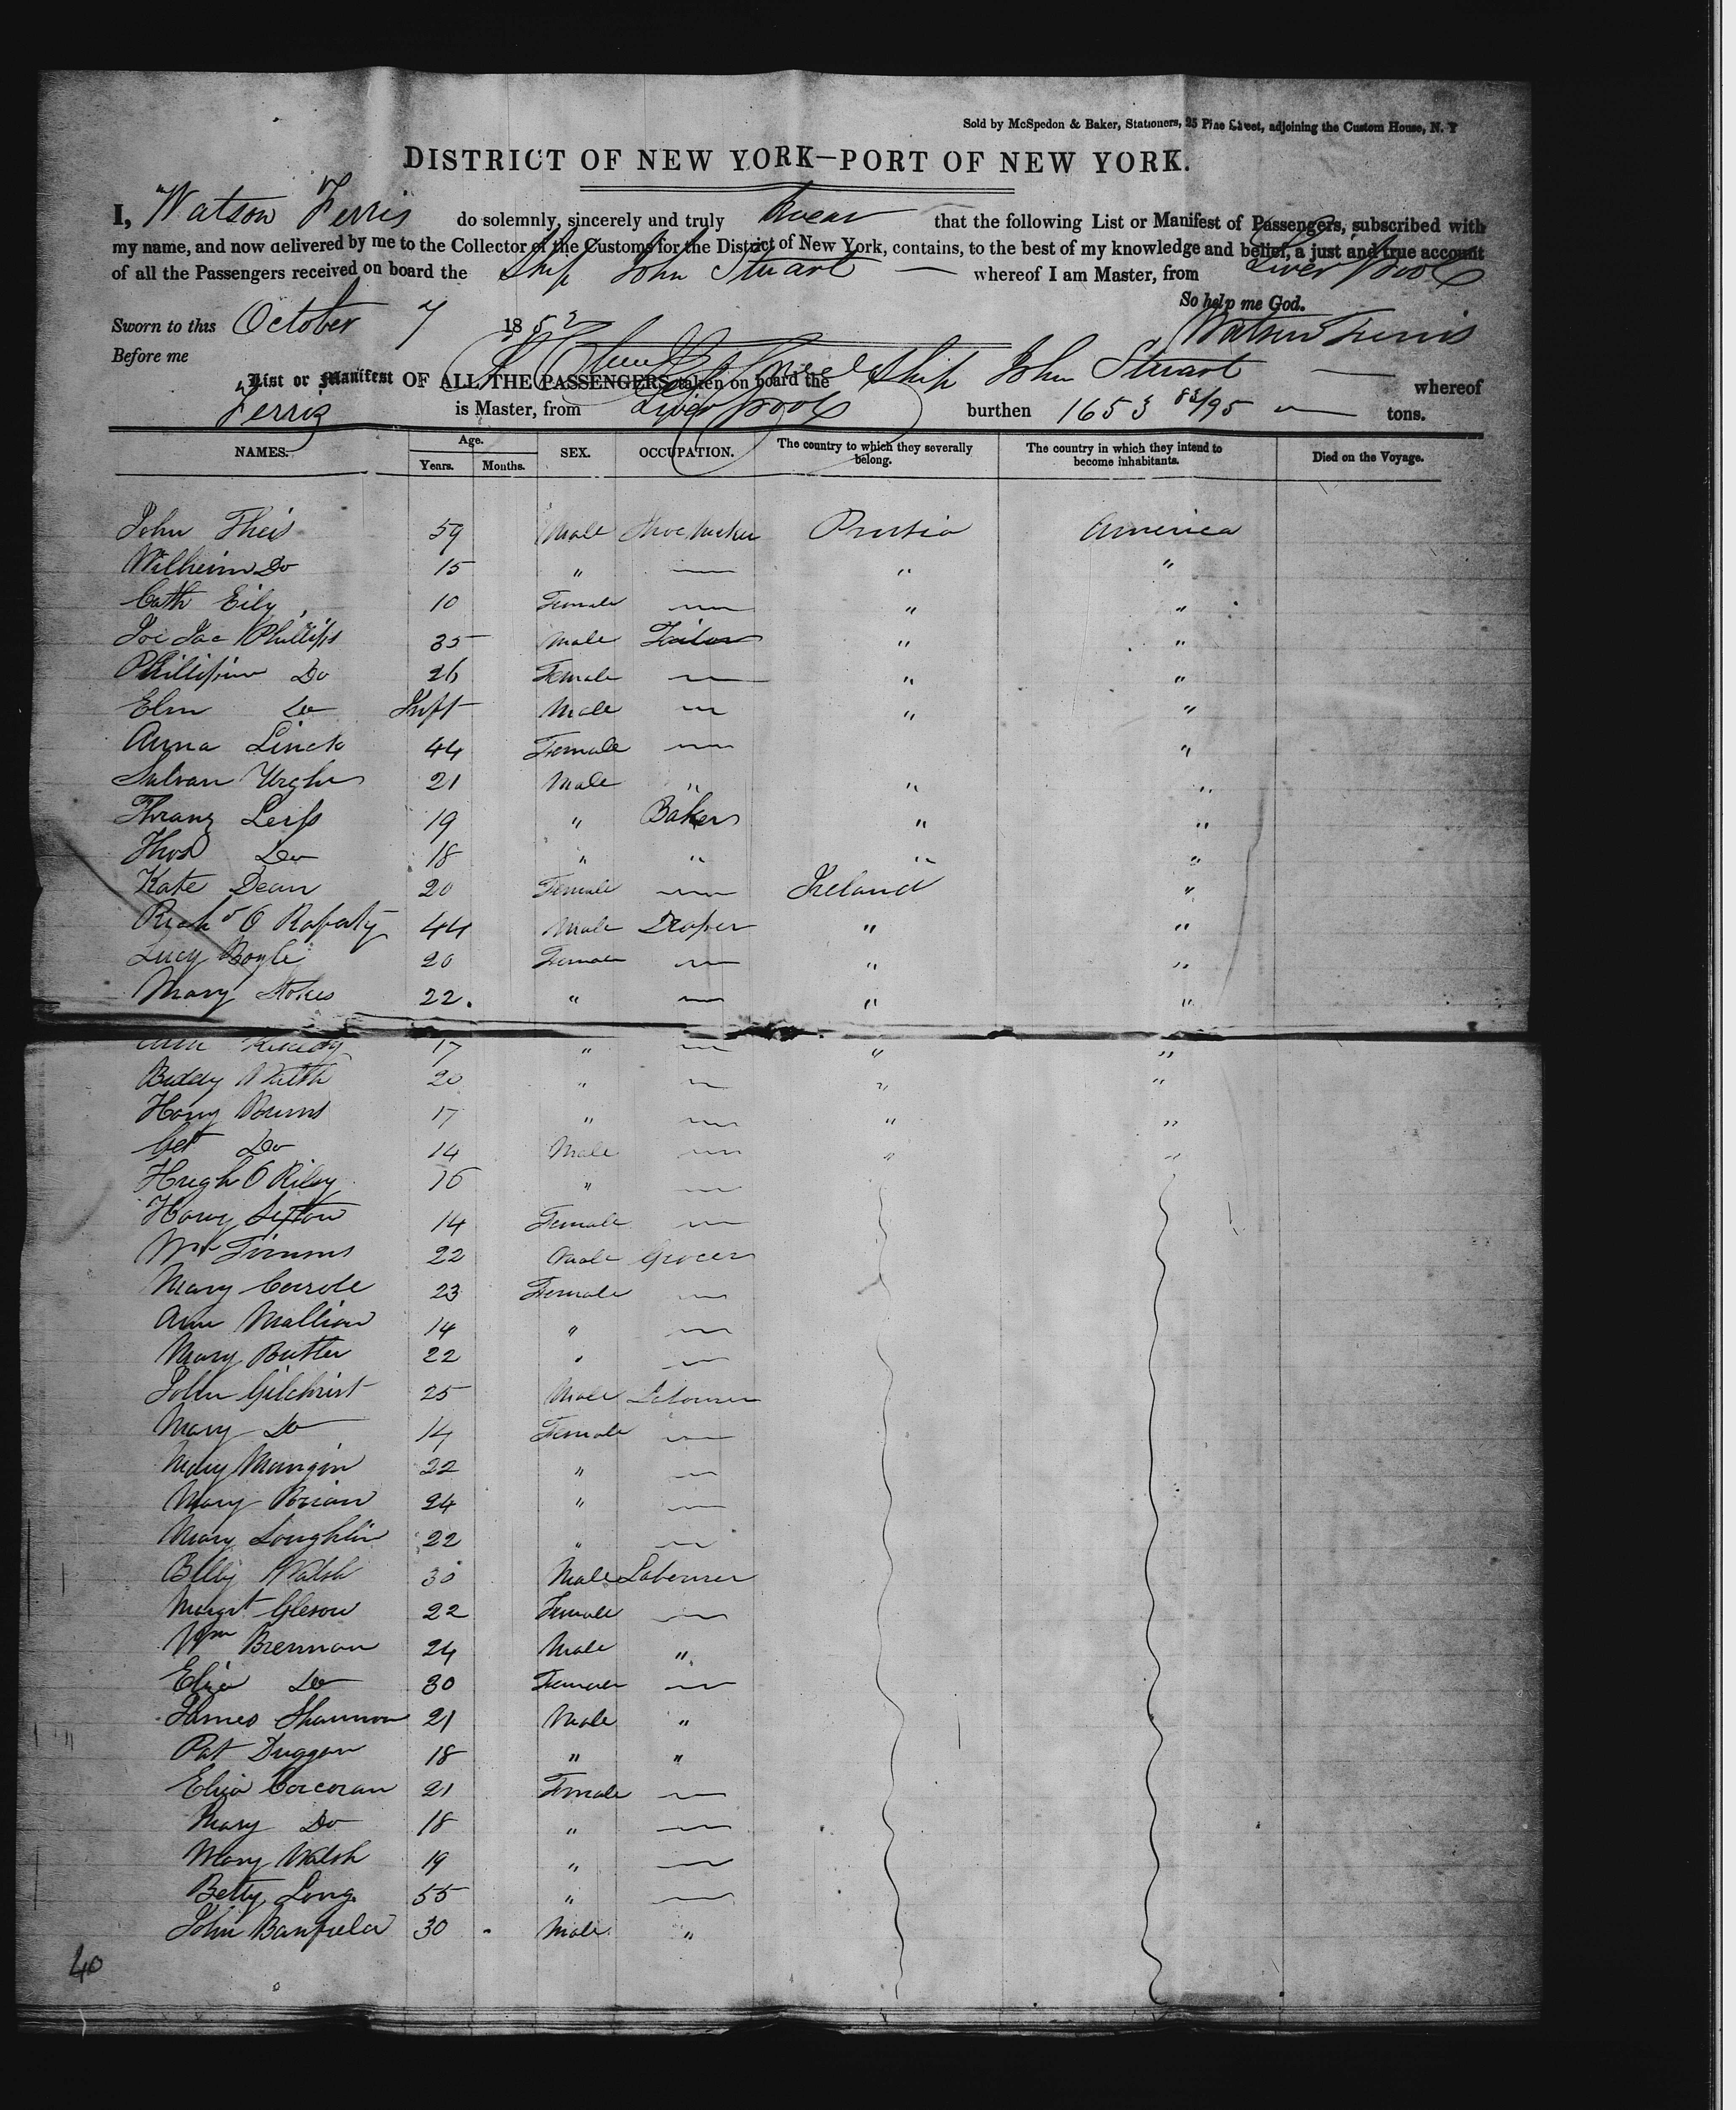 Sold by McSpedon & Baker, Stationers, 25 Pine Street, adjoining the Custom House, N. Y
DISTRICT OF NEW YORK—PORT OF NEW YORK.
I, Watson Ferris do solemnly, sincerely and truly swear that the following List or Manifest of Passengers, subscribed with
my name, and now delivered by me to the Collector of the Customs for the District of New York, contains, to the best of my knowledge and belief, a just and true account
of all the Passengers received on board the Ship John Stuart whereof I am Master, from Liverpool
So help me God.
Sworn to this October 7 1852 Watson Ferris
Before me
List or Manifest OF ALL THE PASSENGERS taken on board the Ship John Stuart whereof
Ferris is Master, from Liverpool burthen 1653 83/95 tons.
NAMES. Age. Years. Months. SEX. OCCUPATION. The country to which they severally belong. The country in which they intend to become inhabitants. Died on the Voyage.
John Theis 59 Male Shoe Maker Prusia America
Wilheim Do 15 " — " "
Cath Eily 10 Female — " "
Phillips 35 Male Tailor " "
Phillipin Do 26 Female — " "
Elm Do Inft Male — " "
Anna Linck 44 Female — "
21 Male " " "
Leifs 19 " Baker " "
Thos Do 18 " " " "
Kate Dean 20 Female — Ireland "
Richd O Rafaty 44 Male Draper " "
Lucy Boyle 20 Female — " "
Mary Stokes 22. " — " "
17 " — " "
Biddy Walsh 20 " — " "
Hony Burns 17 " — " "
Do 14 Male — " "
Hugh O Riley 16 " —
Hony Sexton 14 Female —
Wm Timms 22 Male Grocer
Mary Carole 23 Female —
Ann Mallion 14 " —
Mary Butler 22 " —
John Gilchrist 25 Male Labourer
Mary Do 14 Female —
Mary Mangin 22 " —
Mary Brian 24 " —
Mary Loughlin 22 " —
Walsh 30 Male Labourer
Margt Gleson 22 Female —
Wm Brennan 24 Male "
Eliza Do 30 Female —
James Shannon 21 Male "
Pat Duggan 18 " "
Eliza Corcoran 21 Female —
Mary Do 18 " —
Mary Walsh 19 " —
Betty Long 55 " —
John Banfield 30 Male "
40